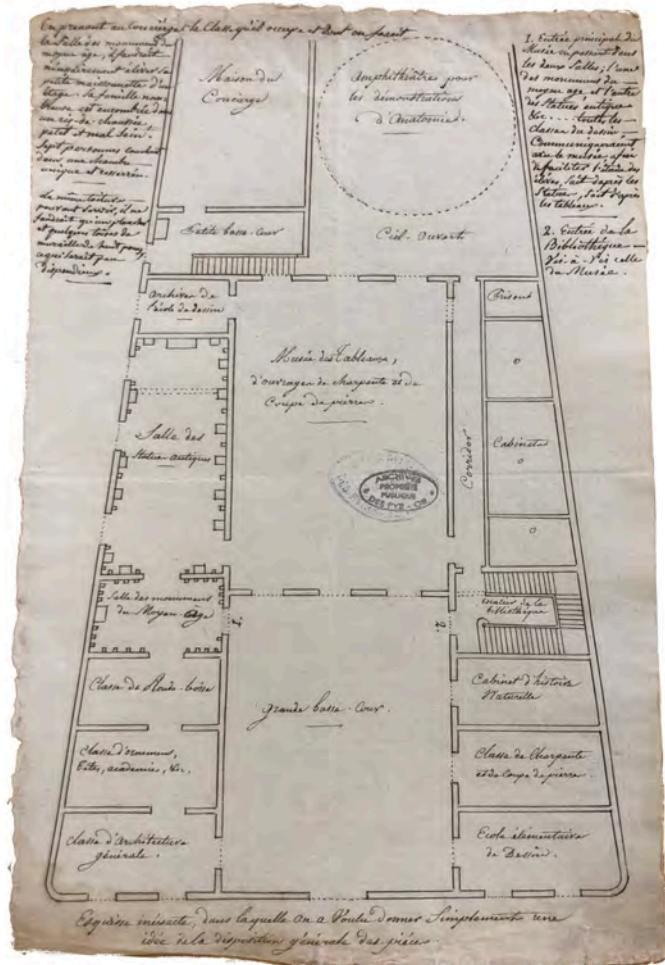 En prenant au Concierge la Classe qu'il occupe et dont on feroit
la Salle des monumens du
moyen âge, il faudrait
nécessairement élever sa
petite maisonnette d'un
étage. Sa famille nom-
breuse est encombrée dans
un rez-de-chaussée
petit et mal sain.
Sept personnes couchent
dans une chambre
unique et resserrée.
La même toiture
pouvant servir, il ne
faudrait qu'un plancher
et quelques toises de
muraille de huit pouces,
ce qui serait peu
dispendieux.
Maison du
Concierge
Amphithéâtre pour
les démonstrations
d'Anatomie.
1. Entrée principale du
Musée en passant dans
les deux Salles; l'une
des monumens du
moyen age et l'autre
des Statues antiques
&c. ... toutes les
classes du dessin
Communiqueraient
avec le musée, afin
de faciliter l'étude des
élèves, soit d'après les
Statues, soit d'après
les tableaux.
2. Entrée de la
Bibliothèque
Vis-à-Vis celle
du Musée.
Petite basse-cour
Ciel-ouvert
archives de
l'école de dessin
Prisons
Musée des Tableaux,
d'ouvrages de charpente et de
Coupe de pierres.
Salle des
Statues antiques
Corridor
Cabinets
ARCHIVES
PROPRIÉTÉ
PUBLIQUE
DES PYR-OR
Salle des monumens
du Moyen-âge
1.
2.
escalier de la
bibliothèque
Classe de Ronde-bosse
grande basse-cour.
Cabinet d'histoire
Naturelle
Classe d'ornemens,
têtes, académies, &c.
Classe de Charpente
et de Coupe de pierre.
Classe d'architecture
générale.
Ecole élémentaire
de Dessin.
Esquisse inexacte, dans laquelle on a Voulu donner Simplement une
idée de la disposition générale des pièces.